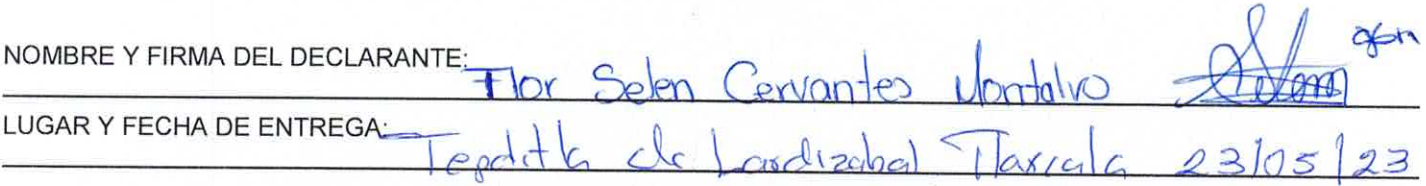 NOMBRE Y FIRMA DEL DECLARANTE: Flor Selen Cervantes Montalvo
LUGAR Y FECHA DE ENTREGA: Tepetitla de Lardizabal Tlaxcala 23/05/23